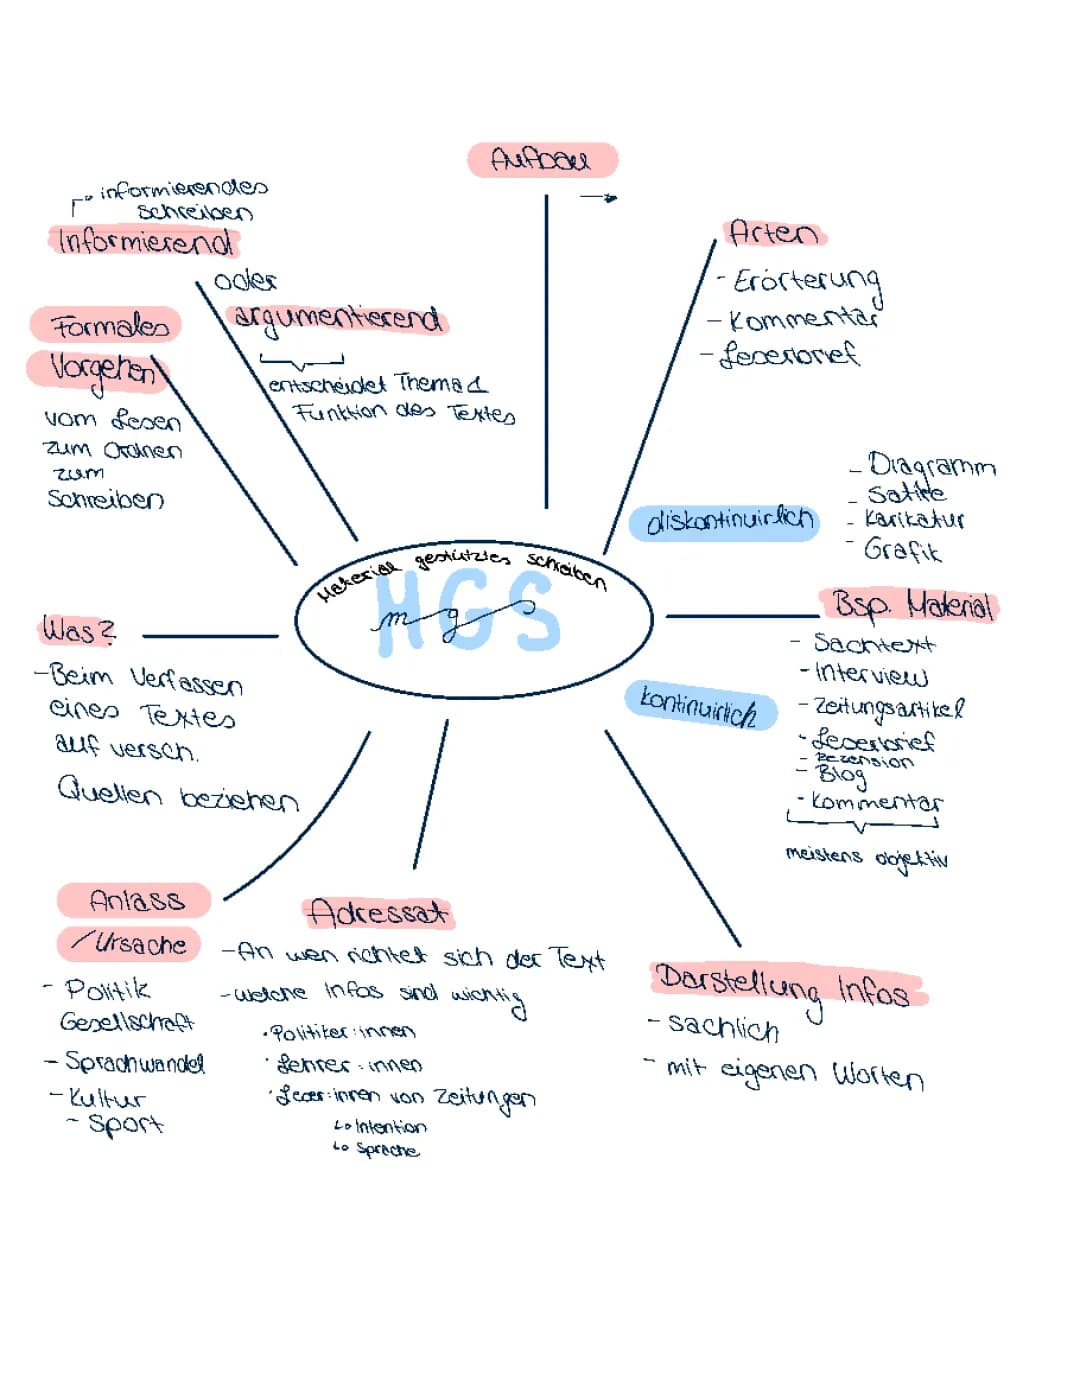 Aufbau
→
informierendes
schreiben
Informierend
oder
argumentierend
entscheidet Thema &
Funktion des Textes
Arten
- Erörterung
- Kommentar
- Leserbrief
Formales
Vorgehen
vom Lesen
zum Ordnen
zum
Schreiben
diskontinuirlich
- Diagramm
- Satire
- Karikatur
- Grafik
Material gestütztes schreiben
MGS
m g s
Bsp. Material
- Sachtext
- Interview
- Zeitungsartikel
- Leserbrief
- Rezension
- Blog
- Kommentar
meistens objektiv
kontinuirlich
Was?
- Beim Verfassen
eines Textes
auf versch.
Quellen beziehen
Anlass
/Ursache
- Politik
Gesellschaft
- Sprachwandel
- Kultur
- Sport
Adressat
- An wen richtet sich der Text
- welche Infos sind wichtig
• Politiker:innen
• Lehrer:innen
• Leser:innen von Zeitungen
↳ Intention
↳ Sprache
Darstellung Infos
- sachlich
- mit eigenen Worten